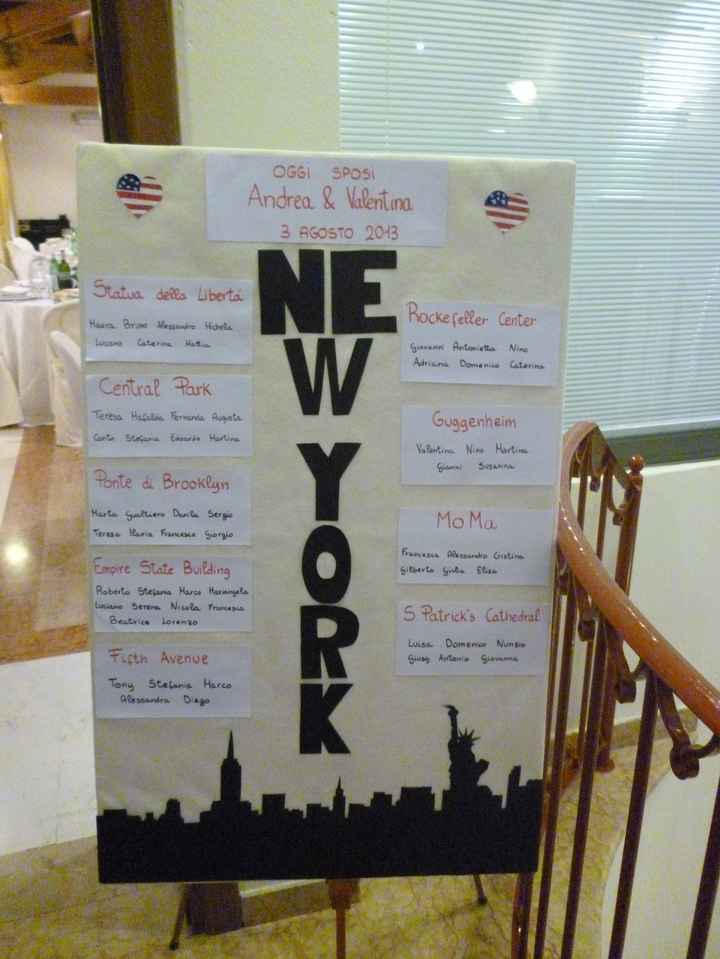 OGGI SPOSI
Andrea & Valentina
3 AGOSTO 2013
NEW YORK
Statua della Libertá
Maura Bruno Alessandro Michela
Luciano Caterina Mattia
Central Park
Teresa Mafalda Fernanda Augusta
Stefania Edoardo Martina
Ponte di Brooklyn
Marta Gualtiero Danila Sergio
Teresa Ilaria Francesco Giorgio
Empire State Building
Roberto Stefania Marco Mariangela
Luciano Serena Nicola Francesca
Beatrice Lorenzo
Fifth Avenue
Tony Stefania Marco
Alessandra Diego
Rockefeller Center
Giovanni Antonietta Nino
Adriana Domenico Caterina
Guggenheim
Valentina Nino Martina
Gianni Susanna
MoMa
Francesca Alessandro Cristina
Gilberto Giulia Elisa
S. Patrick's Cathedral
Luisa Domenico Nunzio
Giusy Antonio Giovanna